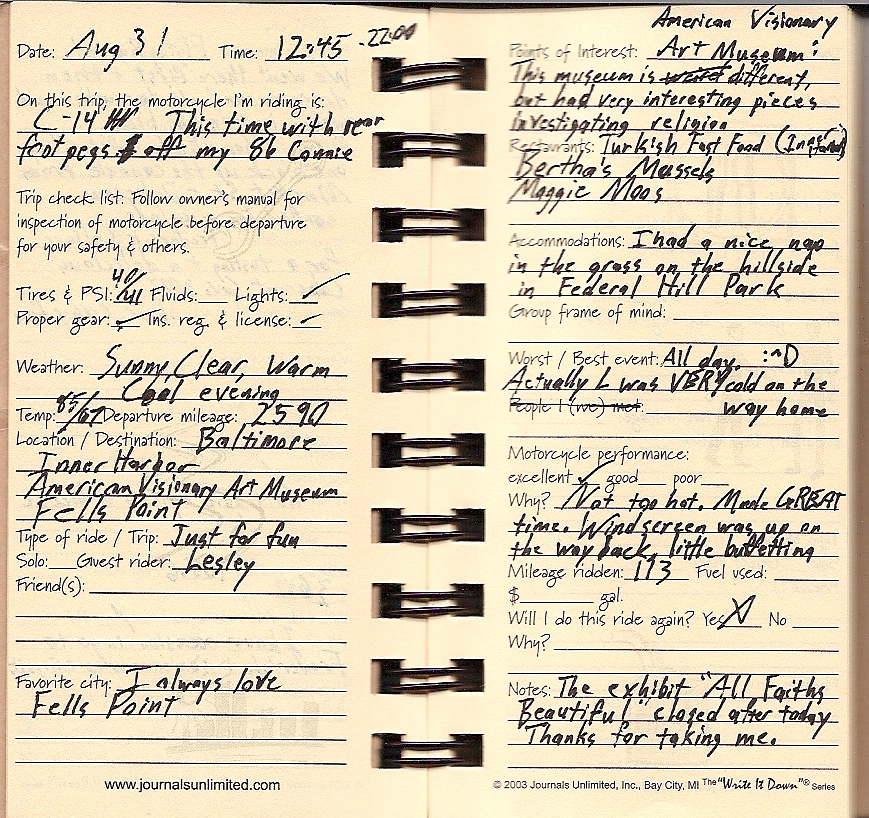 Date: Aug 31 Time: 12:45 -22:00
On this trip, the motorcycle I'm riding is:
C-14 This time with rear
footpegs off my 86 Connie
Trip check list: Follow owner's manual for
inspection of motorcycle before departure
for your safety & others.
Tires & PSI: 40/41 Fluids: Lights: ✓
Proper gear: ✓ Ins. reg. & license: ✓
Weather: Sunny, Clear, Warm
Cool evening
Temp: 85/67 Departure mileage: 2590
Location / Destination: Baltimore
Inner Harbor
American Visionary Art Museum
Fells Point
Type of ride / Trip: Just for fun
Solo: Guest rider: Lesley
Friend(s):
Favorite city: I always love
Fells Point
www.journalsunlimited.com
American Visionary
Points of Interest: Art Museum:
This museum is weird different,
but had very interesting pieces
investigating religion
Restaurants: Turkish Fast Food (Inner Harbor)
Bertha's Mussels
Maggie Moos
Accommodations: I had a nice nap
in the grass on the hillside
in Federal Hill Park
Group frame of mind:
Worst / Best event: All day. :^D
Actually I was VERY cold on the
People I (we) met: way home
Motorcycle performance:
excellent ✓ good poor
Why? Not too hot. Made GREAT
time. Windscreen was up on
the way back, little buffetting
Mileage ridden: 113 Fuel used:
$ gal.
Will I do this ride again? Yes X No
Why?
Notes: The exhibit "All Faiths
Beautiful" closed after today
Thanks for taking me.
© 2003 Journals Unlimited, Inc., Bay City, MI The "Write It Down"® Series